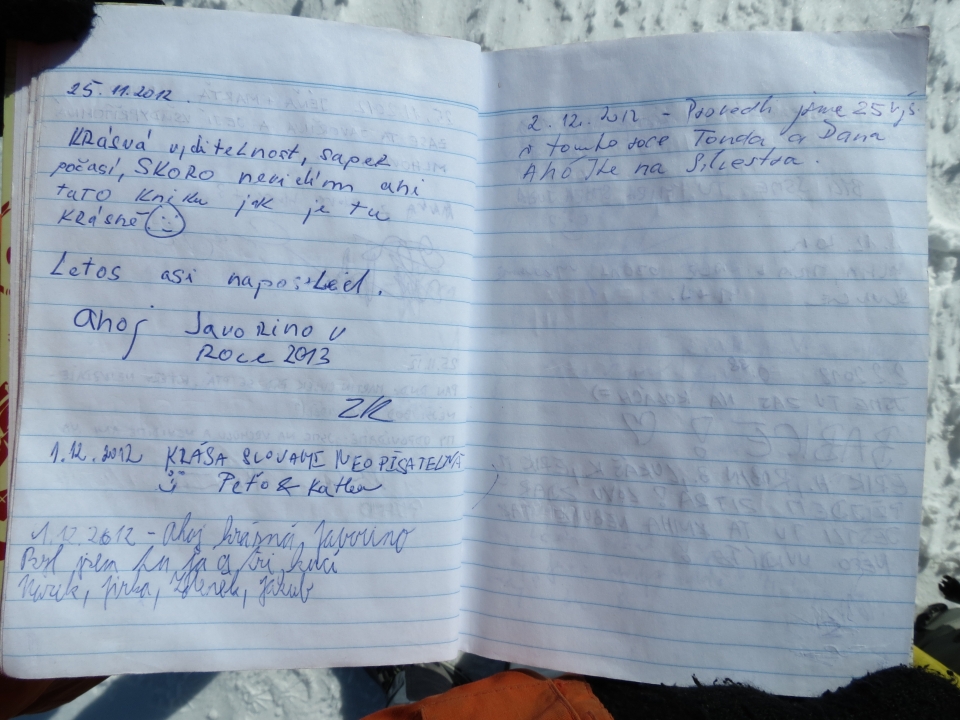 25.11.2012.
KRÁSNÁ viditelnost, super
počasí, SKORO nevidím ani
tuto knihu jak je tu
KRÁSNĚ
Letos asi naposled.
Ahoj Javorino v
roce 2013
ZK
1.12.2012 KRÁSA SLOVAMI NEOPÍSATELNÁ
Peťo & Katka
1.12.2012 - Ahoj krásná Javorino
Byl jsem tu já a tři kluci
Jirka, Zdenek, Jakub
2.12.2012 - jsme 25 výš.
v tomto roce Tonda a Dana
Ahoj na Silvestra.